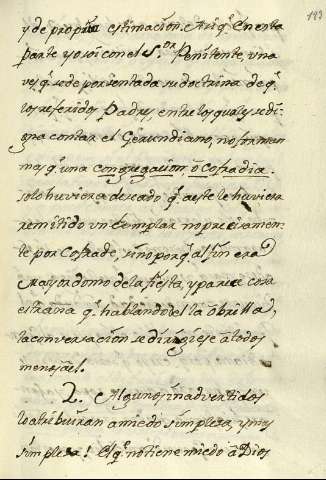 193
y de propria estimacion. Asi qe. en esta
parte yo soi con el S.or Penitente, una
ves qe. se de por sentada su doctrina de qe.
los referidos Padres, entre los quales se di-
gna contar el Gerundiano, no forman
mas qe. una congregacion, ó Cofradia.
solo huviera deseado qe. a este le huviera
remitido un Exemplar no precisamen-
te por Cofrade, sino porqe. al fin era
Mayordomo de la fiesta, y parece cosa
estraña qe. hablando de el la obrilla,
la conversacion se dirigiese a todos
menos à el.
2. Algunos inadvertidos
lo atribuiran a miedo simpleza, y mas
simpleza! El qe. no tiene miedo à Dios